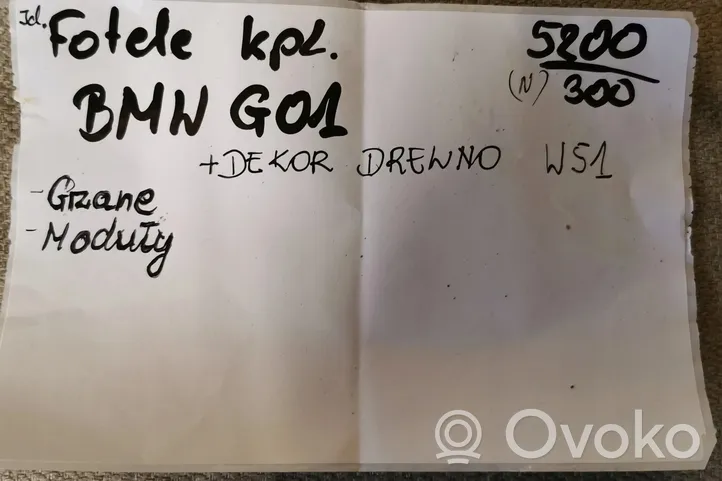 Jd. Fotele kpl. 5200
(N) 300
BMW G01
+DEKOR DREWNO W51
- Grzane
- Moduły
Ovoko